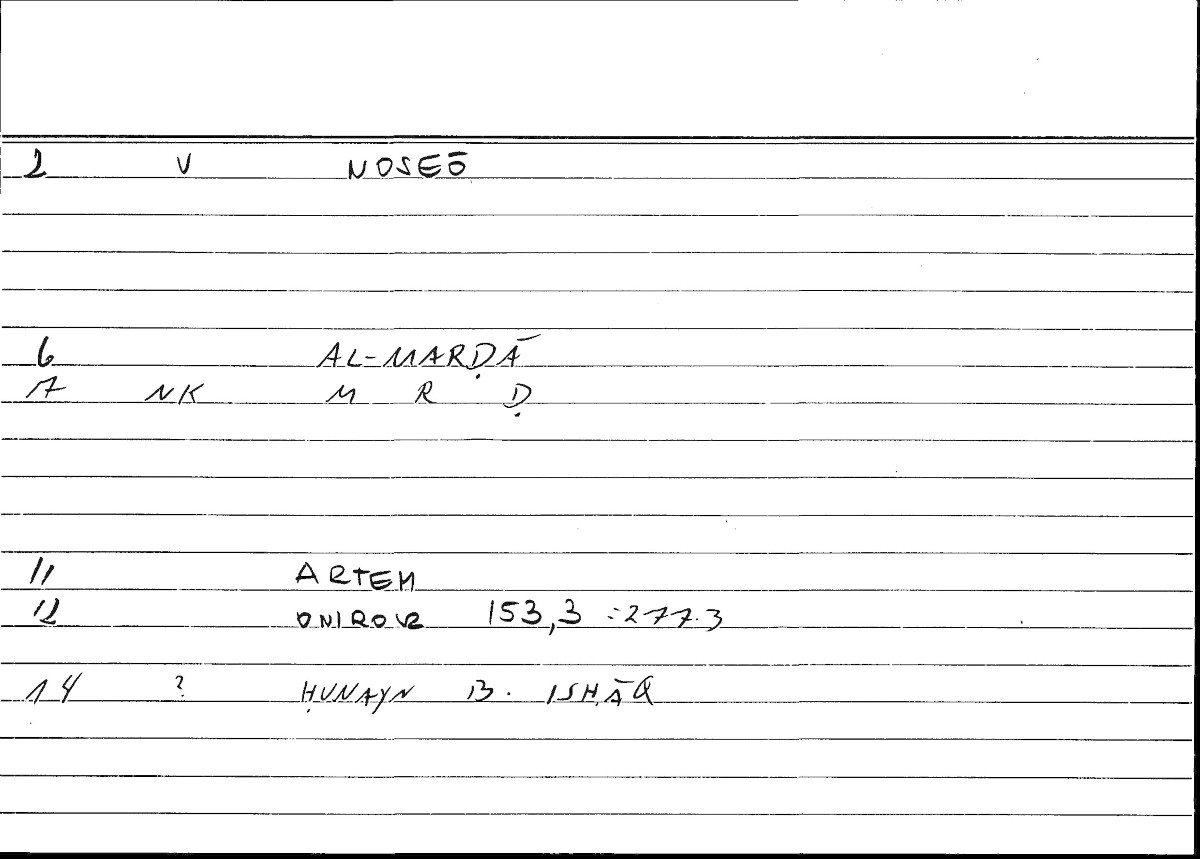 2 V NOSEŌ
6 AL-MARḌĀ
7 NK M R Ḍ
11 ARTEM
12 ONIROCR 153,3 = 277.3
14 ? ḤUNAYN B. ISḤĀQ